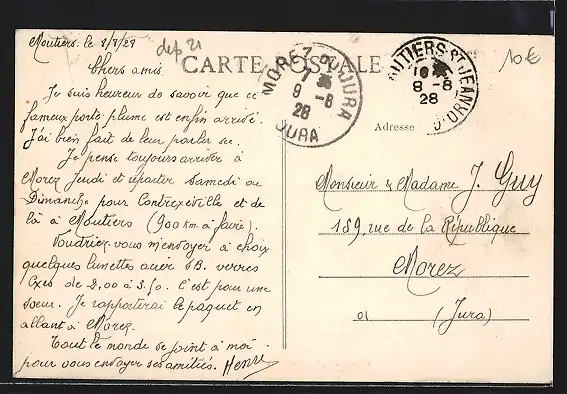 Moutiers. le 8/8/28
dep 21
CARTE POSTALE
10€
MOREZ-DU-JURA
7
9 -8
28
JURA
MOUTIERS-ST-JEAN
16
8 -8
28
CÔTE D'OR
Chers amis.
Je suis heureux de savoir que ce
fameux porte plume est enfin arrivé.
J'ai bien fait de leur parler sec.
Je pense toujours arriver à
Morez Jeudi et repartir samedi ou
Dimanche pour Contrexéville et de
là à Moutiers (900 km à faire).
Voudriez-vous m'envoyer à choix
quelques lunettes acier SB. verres
Oxes de 2,00 à 3.50. C'est pour une
soeur. Je rapporterai le paquet en
allant à Morez.
Tout le monde se joint à moi
pour vous envoyer ses amitiés. Henri
Adresse
Monsieur & Madame J. Guy
159, rue de la République
Morez
01 (Jura)